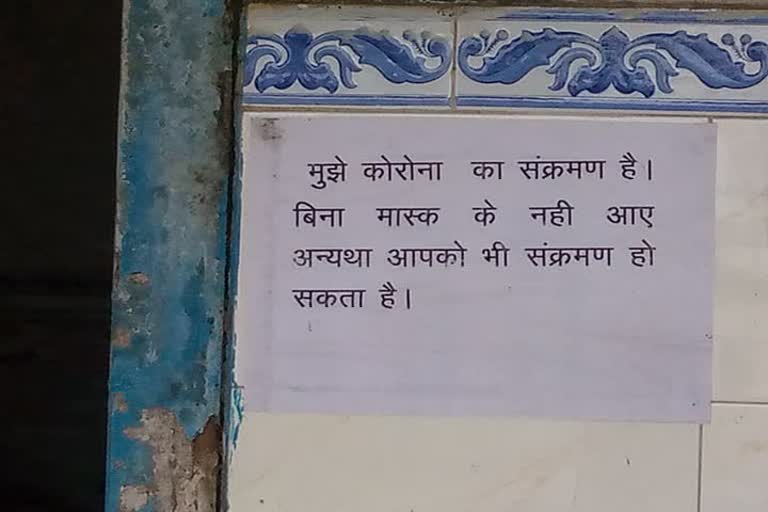 मुझे कोरोना का संक्रमण है।
बिना मास्क के नही आए
अन्यथा आपको भी संक्रमण हो
सकता है।